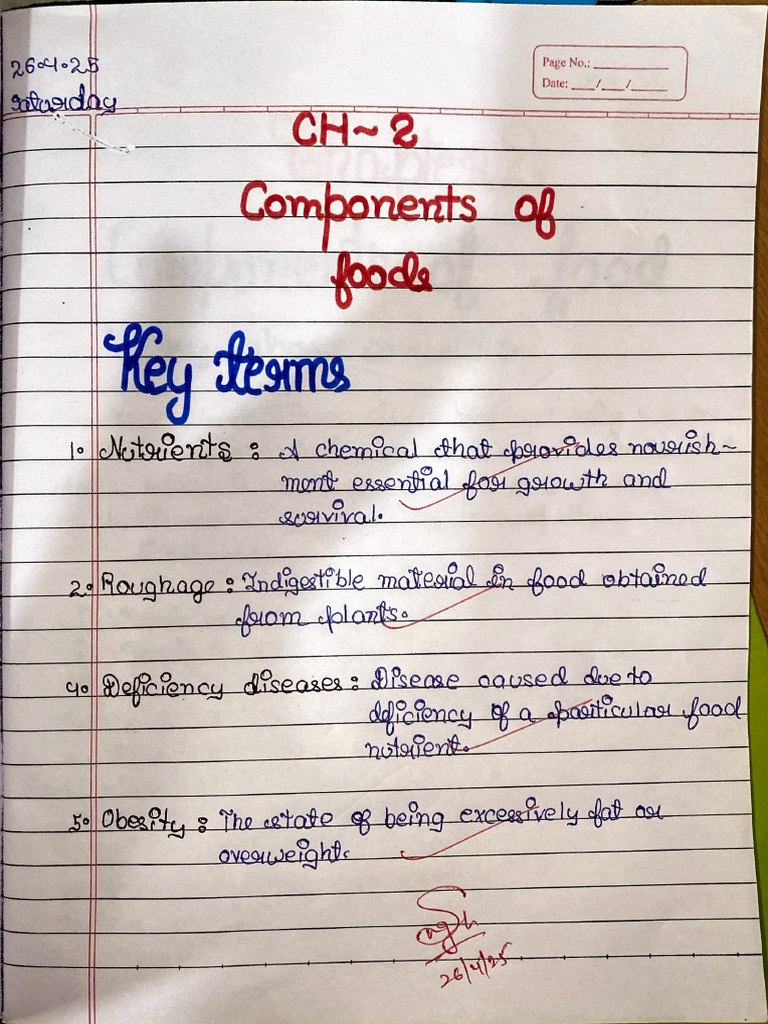 26.4.25
Saturday
Page No.:
Date: / /
CH~2
Components of
foods
Key terms
1. Nutrients : A chemical that provides nourish~
ment essential for growth and
survival.
2. Roughage : Indigestible material in food obtained
from plants.
4. Deficiency diseases : Disease caused due to
dificiency of a particular food
nutrient.
5. Obesity : The state of being excessively fat or
overweight.
26/4/25